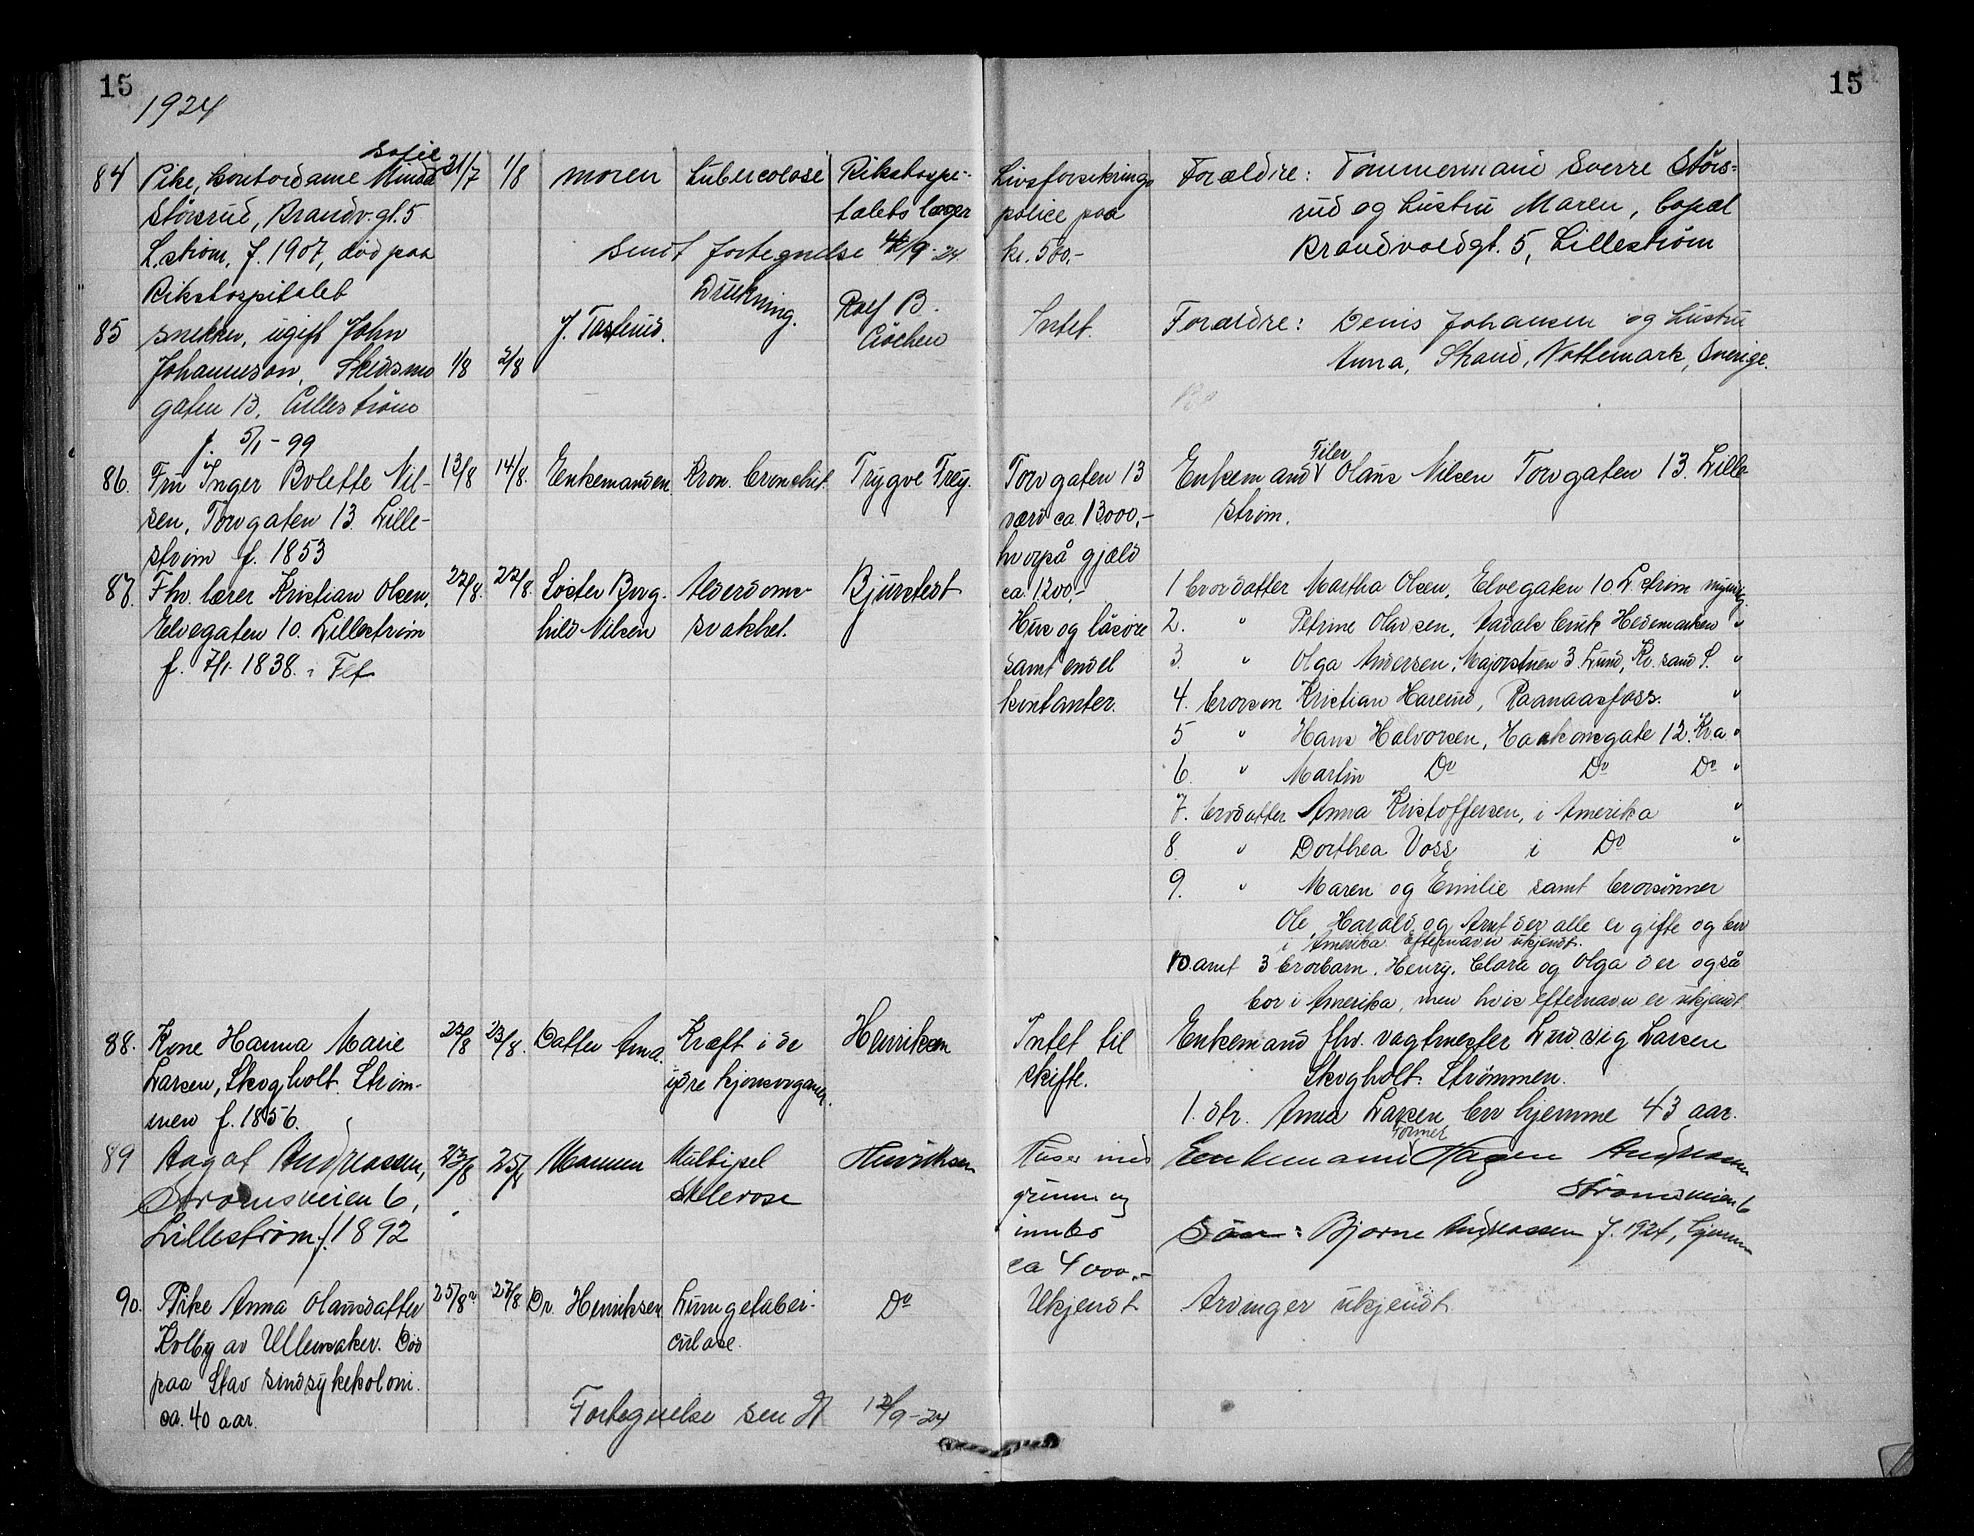 15
15
1924
84 Pike, kontordame Sofie Minda 31/7 1/8 moren Tubercolose Rikshospi-
Størsrud, Brandv.gt. 5 talets læger
L.strøm, f. 1907, død paa sendt fortegnelse /9-24
Rikshospitalet
Livsforsikrings
police paa
kr. 500,-
Forældre: Tømmermand Sverre Størs-
rud og hustru Maren,
Brandvoldgt. 5, Lillestrøm
85 snekker, ugift John J. Drukning. Rolf B.
Johannson, Skedsmo 1/8 2/8
gaten 13, Lillestrøm
f. 5/1-99
Intet.
Forældre: Denis Johansen og hustru
Anna, Strand, Nottemark, Sverige.
86. Fru Inger Bolette Nil- 13/8 14/8. Enkemanden Kron. bronchit. Trygve Frey.
sen, Torvgaten 13. Lille-
strøm f. 1853
Torvgaten 13
værd ca. 13000,-
hvorpå gjæld
ca. 1200,-
Enkemand Filer Olaus Nilsen Torvgaten 13. Lille
strøm.
87. Fhv. lærer Kristian Olsen, 22/8. 22/8. Søster Borg- Alderdoms- Bjurstedt
Elvegaten 10. Lillestrøm hild Nilsen svakhet.
f. 7/1-1838. i Fet
Hus og løsøre
samt endel
kontanter.
1 brordatter Martha Olsen, Elvegaten 10 L.strøm myndig.
2. " Petrine Olavsen, bruk Hedemarken "
3. " Olga Andersen, Majorstuen 3. Lund, Kr. sand S. "
4. brorsøn Kristian Harerud, Raanaasfoss. "
5 " Hans Halvorsen, Haakonsgate 12. Kr.a "
6. " Martin Do Do Do "
7. brordatter Anna Kristoffersen, i Amerika "
8. " Dorthea Voss i Do "
9. " Maren og Emilie samt brorsønner
Ole, Harald og Arnt der alle er gifte og bor
i Amerika efternavn ukjendt.
10. samt 3 brorbarn. Henry, Clara og Olga der også
bor i Amerika, men hvis efternavn er ukjendt
88. Kone Hanna Marie 22/8 23/8. Datter Anna. Kræft i de Henriksen
Larsen, Skogholt. Strøm- ydre kjønsorganer.
men f. 1856.
Intet til
skifte.
Enkemand fhv. vagtmester Ludvig Larsen
Skogholt. Strømmen.
1. dtr. Anna Larsen bor hjemme 43 aar.
89 Aagot Andreassen, 23/8 25/8 Mannen Multipel Henriksen
Strømsveien 6, Sklerose
Lillestrøm f. 1892
Huser med
grunn og
innbo
ca 4000.-
Enkemann Former Hagen Andreassen
Strømsveien 6
Søn: Bjarne Andreassen f. 1924, hjemme
90. Pike Anna Olausdatter 25/8 27/8 Dr. Henriksen Lungetuber- Do
Kolby av Ullensaker. Død culose.
paa Stav sindsykekoloni.
ca. 40 aar.
Fortegnelse sendt 12/9-24
Ukjendt
Arvinger ukjendt